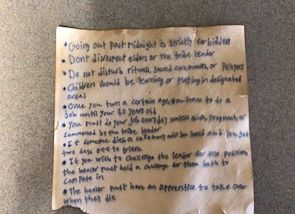 • Going out past midnight is strictly forbidden
• Don't disrespect elders or the tribe leader
• Do not disturb rituals, sacred ceremonies, or prayers
• Children should be learning or playing in designated
areas
• Once you turn a certain age, you have to do a
job until your 60 years old
• You must do your job everyday unless sick, pregnant, or
summoned by the tribe leader
• If someone dies a ceremony will be held and
two days off to grieve
• If you wish to challenge the leader for the position,
the healer must hold a challenge for them both to
compete in
• The healer must have an apprentice to take over
when they die